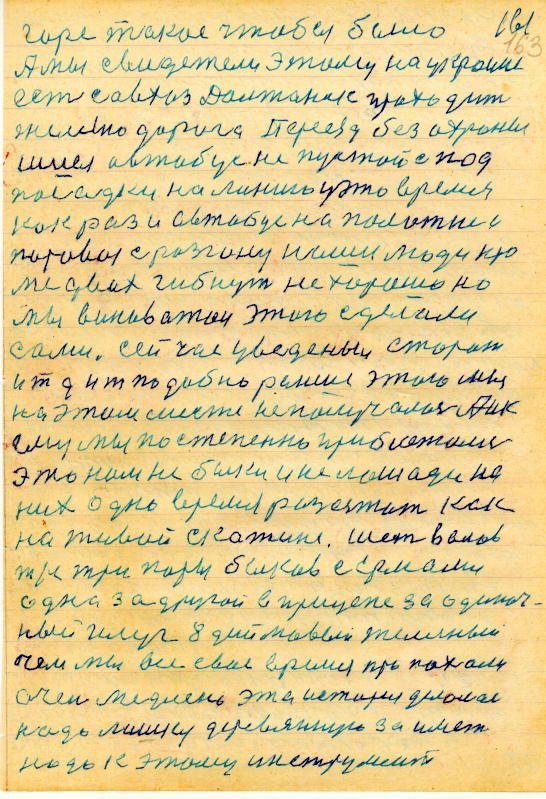 161
163
горе такое чтобы было
А мы свидетели этому на украине
ест савхоз Должанск проходит
желено дорога Переезд без охраны
шшел автобус не пустой с под
поездки на линию уэто время
как раз и автобус на полотне и
поговоя с розгону наши люди кро
ме двоих гибнут не хорошо но
мы виноватои этого зделали
сами. сейчас уведеныи сторож
и т д и т подобно ранше этого мы
на этом месте не получалоя А ик
ему мы постепенно приблежаимя
это нам не быки и не лошади на
них одно время разезжат как
на живой скатине. шест валов
тре три пары быков с ярмами
одна за другой в прицепе за одиноч-
ный плуг 8 дюймовый желеный
чем мы все свое время пропохали
очен медлено эта история делолас
надо лошку деревянную за имет
надо к этому инструмент